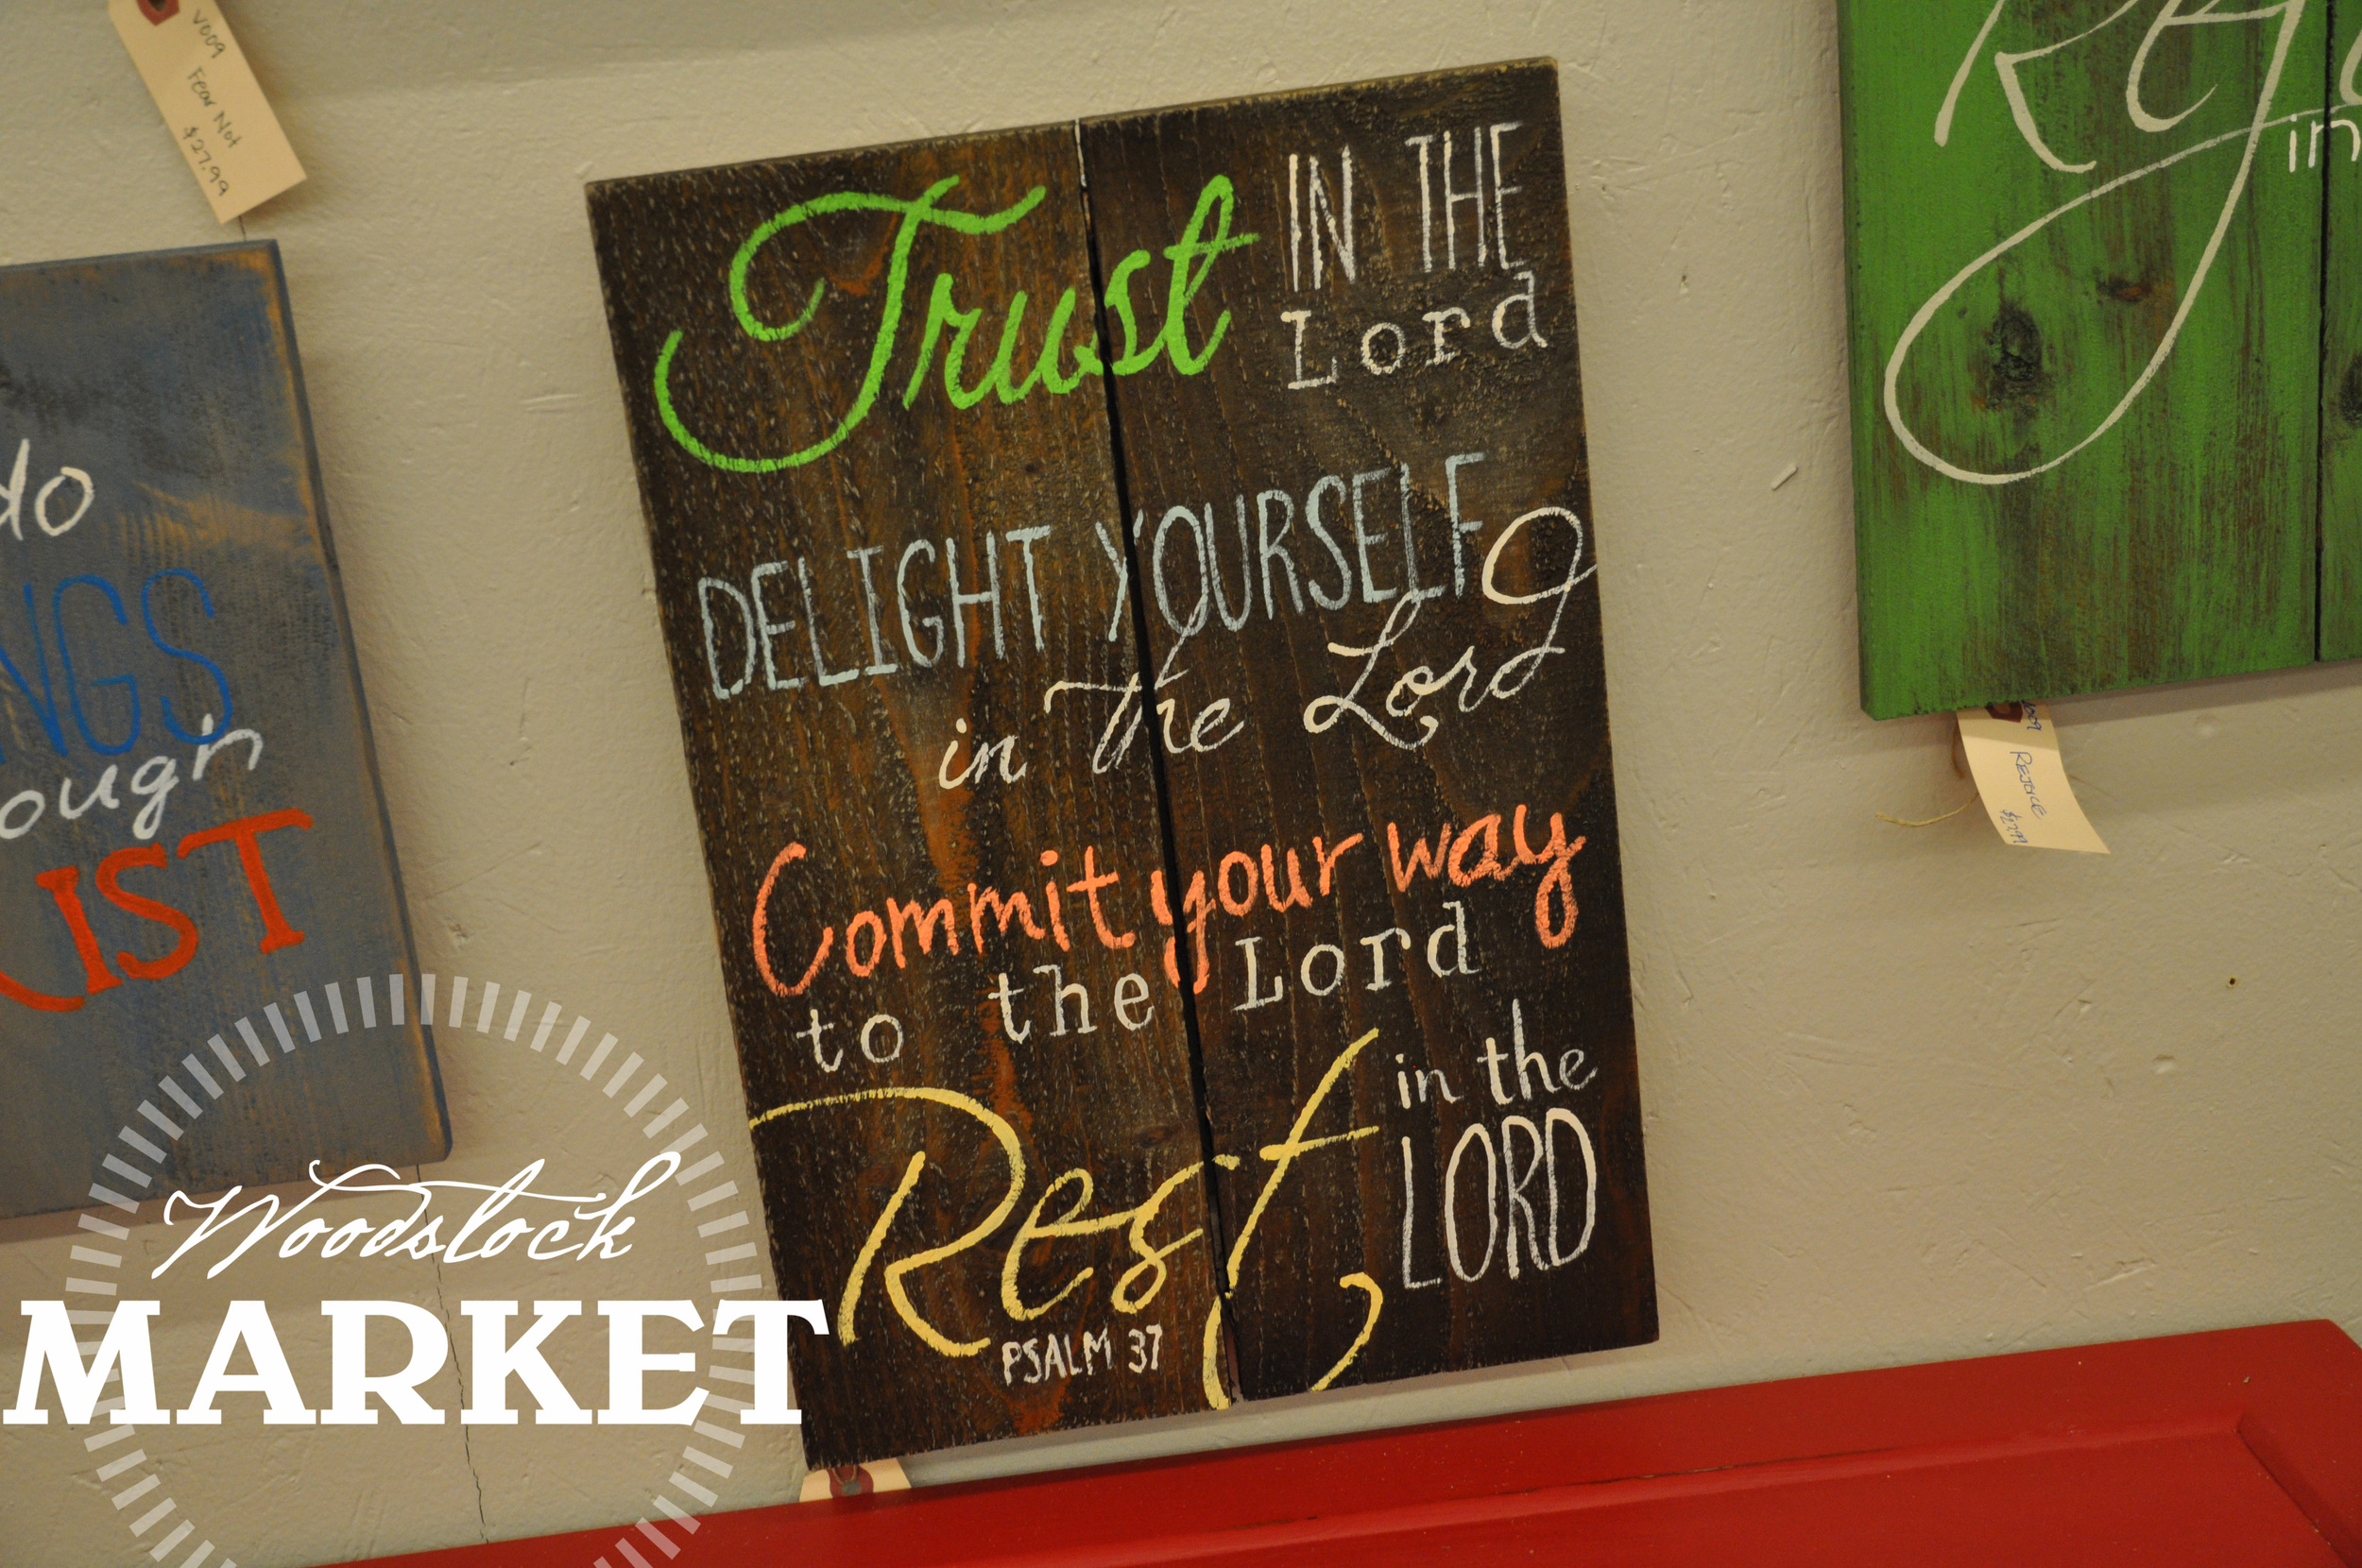 V009 Fear Not $27.99
do
NGS
ough
IST
Trust IN THE
Lord
DELIGHT YOURSELF
in the Lord
Commit your way
to the Lord
Rest in the
LORD
PSALM 37
in
REJOICE
Woodstock
MARKET